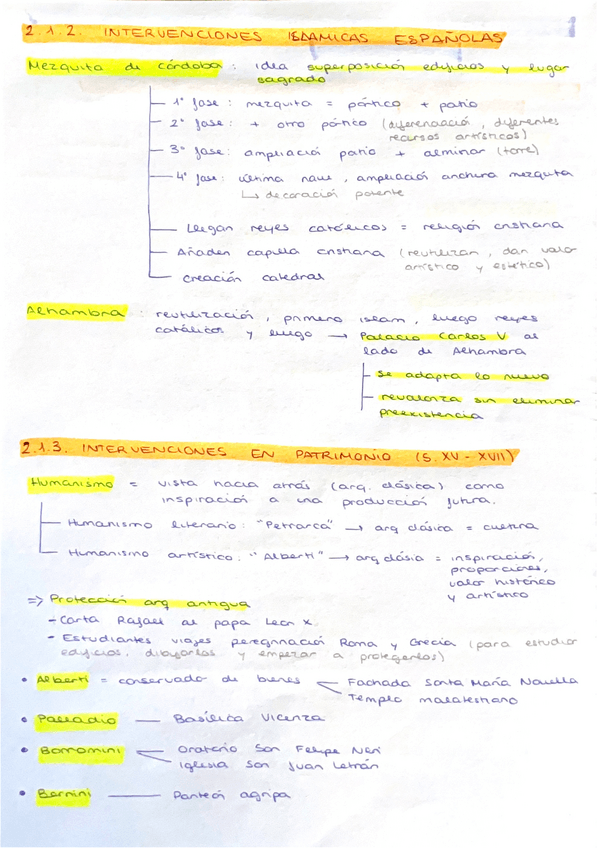 2.1.2. INTERVENCIONES ISLAMICAS ESPAÑOLAS
Mezquita de córdoba : idea superposición edificios y lugar
sagrado
1ª fase : mezquita = pórtico + patio
2ª fase : + otro pórtico (diferenciación, diferentes
recursos artísticos)
3ª fase : ampliación patio + alminar (torre)
4ª fase : última nave, ampliación anchura mezquita
↳ decoración potente
Llegan reyes católicos = religión cristiana
Añaden capilla cristiana (reutilizan, dan valor
artístico y estético)
creación catedral
Alhambra : reutilización, primero islam, luego reyes
católicos y luego → Palacio Carlos V al
lado de Alhambra
se adapta lo nuevo
revaloriza sin eliminar
preexistencia
2.1.3. INTERVENCIONES EN PATRIMONIO (S. XV - XVII)
Humanismo = vista hacia atrás (arq. clásica) como
inspiración a una producción futura.
Humanismo literario : "Petrarca" → arq clásica = cultura
Humanismo artístico : "Alberti" → arq clásia = inspiración,
proporciones,
valor histórico
y artístico
=> Protección arq antigua
- Carta Rafael al papa Leon X.
- Estudiantes viajes peregrinación Roma y Grecia (para estudiar
edificios, dibujarlos y empezar a protegerlos)
• Alberti = conservado de bienes Fachada Santa María Novella
Templo malatestiano
• Palladio — Basílica Vicenza
• Borromini Oratorio San Felipe Neri
Iglesia San Juan Letrán
• Bernini — Panteón agripa